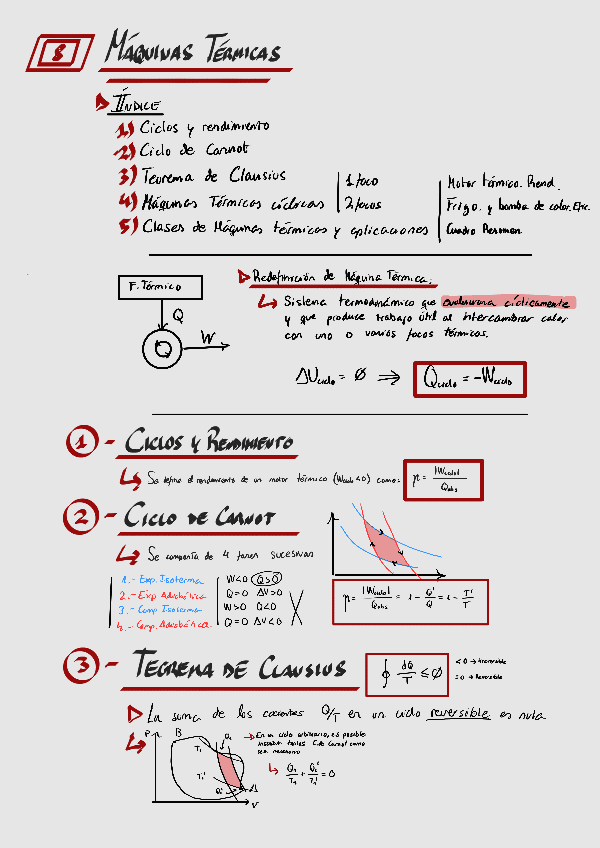 8 MÁQUINAS TÉRMICAS
ÍNDICE
1) Ciclos y rendimiento
2) Ciclo de Carnot
3) Teorema de Clausius
4) Máquinas Térmicas cíclicas | 1 foco | Motor térmico. Rend.
2 focos | Frigo. y bomba de calor. Efic.
5) Clases de Máquinas térmicas y aplicaciones | Cuadro Resumen
F. Térmico
Q
W
Q
Redefinición de Máquina Térmica.
Sistema termodinámico que evoluciona cíclicamente
y que produce trabajo útil al intercambiar calor
con uno o varios focos térmicos.
ΔU ciclo = Ø ⇒ Q ciclo = -W ciclo
1 - CICLOS Y RENDIMIENTO
Se define el rendimiento de un motor térmico (W ciclo < 0) como: η = |W ciclo| / Q abs
2 - CICLO DE CARNOT
Se compone de 4 fases sucesivas
1.- Exp. Isoterma W<0 Q>0
2.- Exp Adiabática Q=0 ΔV>0
3.- Comp Isoterma W>0 Q<0
4.- Comp. Adiabática. Q=0 ΔV<0
η = |W ciclo| / Q abs = 1 - Q' / Q = 1 - T' / T
3 - TEOREMA DE CLAUSIUS
∮ dQ / T ≤ Ø
< 0 → Irreversible
= 0 → Reversible
La suma de los cocientes Q/T en un ciclo reversible es nula
P
B
T₁
Q₁
T₁'
Q₁'
A
V
En un ciclo arbitrario, es posible
insertar tantos C. de Carnot como
sea necesario
Q₁ / T₁ + Q₁' / T₁' = 0